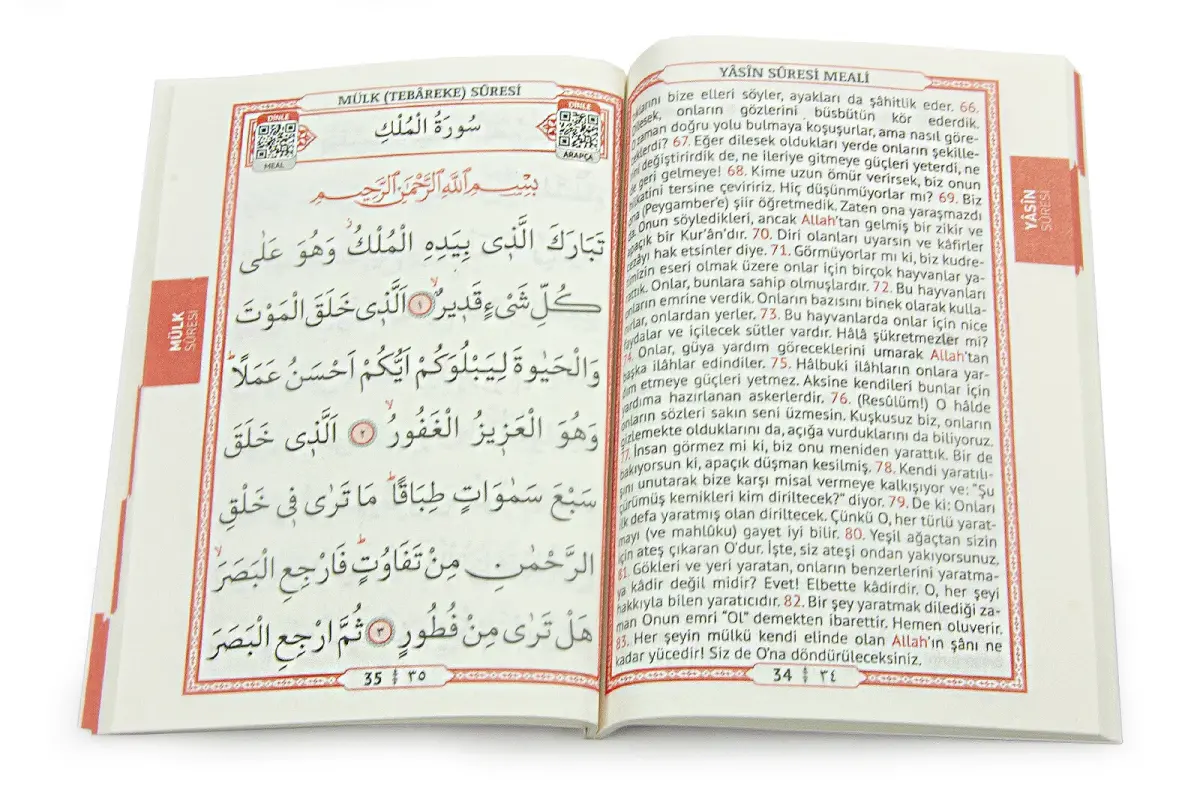 YÂSÎN SÛRESİ MEALİ
bize elleri söyler, ayakları da şâhitlik eder. 66.
onların gözlerini büsbütün kör ederdik.
zaman doğru yolu bulmaya koşuşurlar, ama nasıl göre-
67. Eğer dilesek oldukları yerde onların şekille-
değiştirirdik de, ne ileriye gitmeye güçleri yeterdi, ne
geri gelmeye! 68. Kime uzun ömür verirsek, biz onun
tersine çeviririz. Hiç düşünmüyorlar mı? 69. Biz
(Peygamber'e) şiir öğretmedik. Zaten ona yaraşmazdı
Onun söyledikleri, ancak Allah'tan gelmiş bir zikir ve
apaçık bir Kur'ân'dır. 70. Diri olanları uyarsın ve kâfirler
cezayı hak etsinler diye. 71. Görmüyorlar mı ki, biz kudre-
timizin eseri olmak üzere onlar için birçok hayvanlar ya-
rattık. Onlar, bunlara sahip olmuşlardır. 72. Bu hayvanları
onların emrine verdik. Onların bazısını binek olarak kulla-
nırlar, onlardan yerler. 73. Bu hayvanlarda onlar için nice
faydalar ve içilecek sütler vardır. Hâlâ şükretmezler mi?
74. Onlar, güya yardım göreceklerini umarak Allah'tan
başka ilâhlar edindiler. 75. Hâlbuki ilâhların onlara yar-
dım etmeye güçleri yetmez. Aksine kendileri bunlar için
yardıma hazırlanan askerlerdir. 76. (Resûlüm!) O hâlde
onların sözleri sakın seni üzmesin. Kuşkusuz biz, onların
gizlemekte olduklarını da, açığa vurduklarını da biliyoruz.
77. İnsan görmez mi ki, biz onu meniden yarattık. Bir de
bakıyorsun ki, apaçık düşman kesilmiş. 78. Kendi yaratılı-
şını unutarak bize karşı misal vermeye kalkışıyor ve: "Şu
çürümüş kemikleri kim diriltecek?" diyor. 79. De ki: Onları
ilk defa yaratmış olan diriltecek. Çünkü O, her türlü yarat-
mayı (ve mahlûku) gayet iyi bilir. 80. Yeşil ağaçtan sizin
için ateş çıkaran O'dur. İşte, siz ateşi ondan yakıyorsunuz.
81. Gökleri ve yeri yaratan, onların benzerlerini yaratma-
ya kâdir değil midir? Evet! Elbette kâdirdir. O, her şeyi
hakkıyla bilen yaratıcıdır. 82. Bir şey yaratmak dilediği za-
man Onun emri "Ol" demekten ibarettir. Hemen oluverir.
83. Her şeyin mülkü kendi elinde olan Allah'ın şânı ne
kadar yücedir! Siz de O'na döndürüleceksiniz.
34 ٣٤
YÂSÎN
SÛRESİ
MÜLK (TEBÂREKE) SÛRESİ
DİNLE
ARAPÇA
سُورَةُ الْمُلْكِ
DİNLE
MEAL
بِسْمِ اللّٰهِ الرَّحْمٰنِ الرَّحِيمِ
تَبَارَكَ الَّذ۪ي بِيَدِهِ الْمُلْكُۘ وَهُوَ عَلٰى
كُلِّ شَيْءٍ قَد۪يرٌۙ ﴿١﴾ اَلَّذ۪ي خَلَقَ الْمَوْتَ
وَالْحَيٰوةَ لِيَبْلُوَكُمْ اَيُّكُمْ اَحْسَنُ عَمَلًاۜ
وَهُوَ الْعَز۪يزُ الْغَفُورُۙ ﴿٢﴾ اَلَّذ۪ي خَلَقَ
سَبْعَ سَمٰوَاتٍ طِبَاقًاۜ مَا تَرٰى ف۪ي خَلْقِ
الرَّحْمٰنِ مِنْ تَفَاوُتٍۜ فَارْجِعِ الْبَصَرَۙ
هَلْ تَرٰى مِنْ فُطُورٍ ﴿٣﴾ ثُمَّ ارْجِعِ الْبَصَرَ
35 ٣٥
MÜLK
SÛRESİ